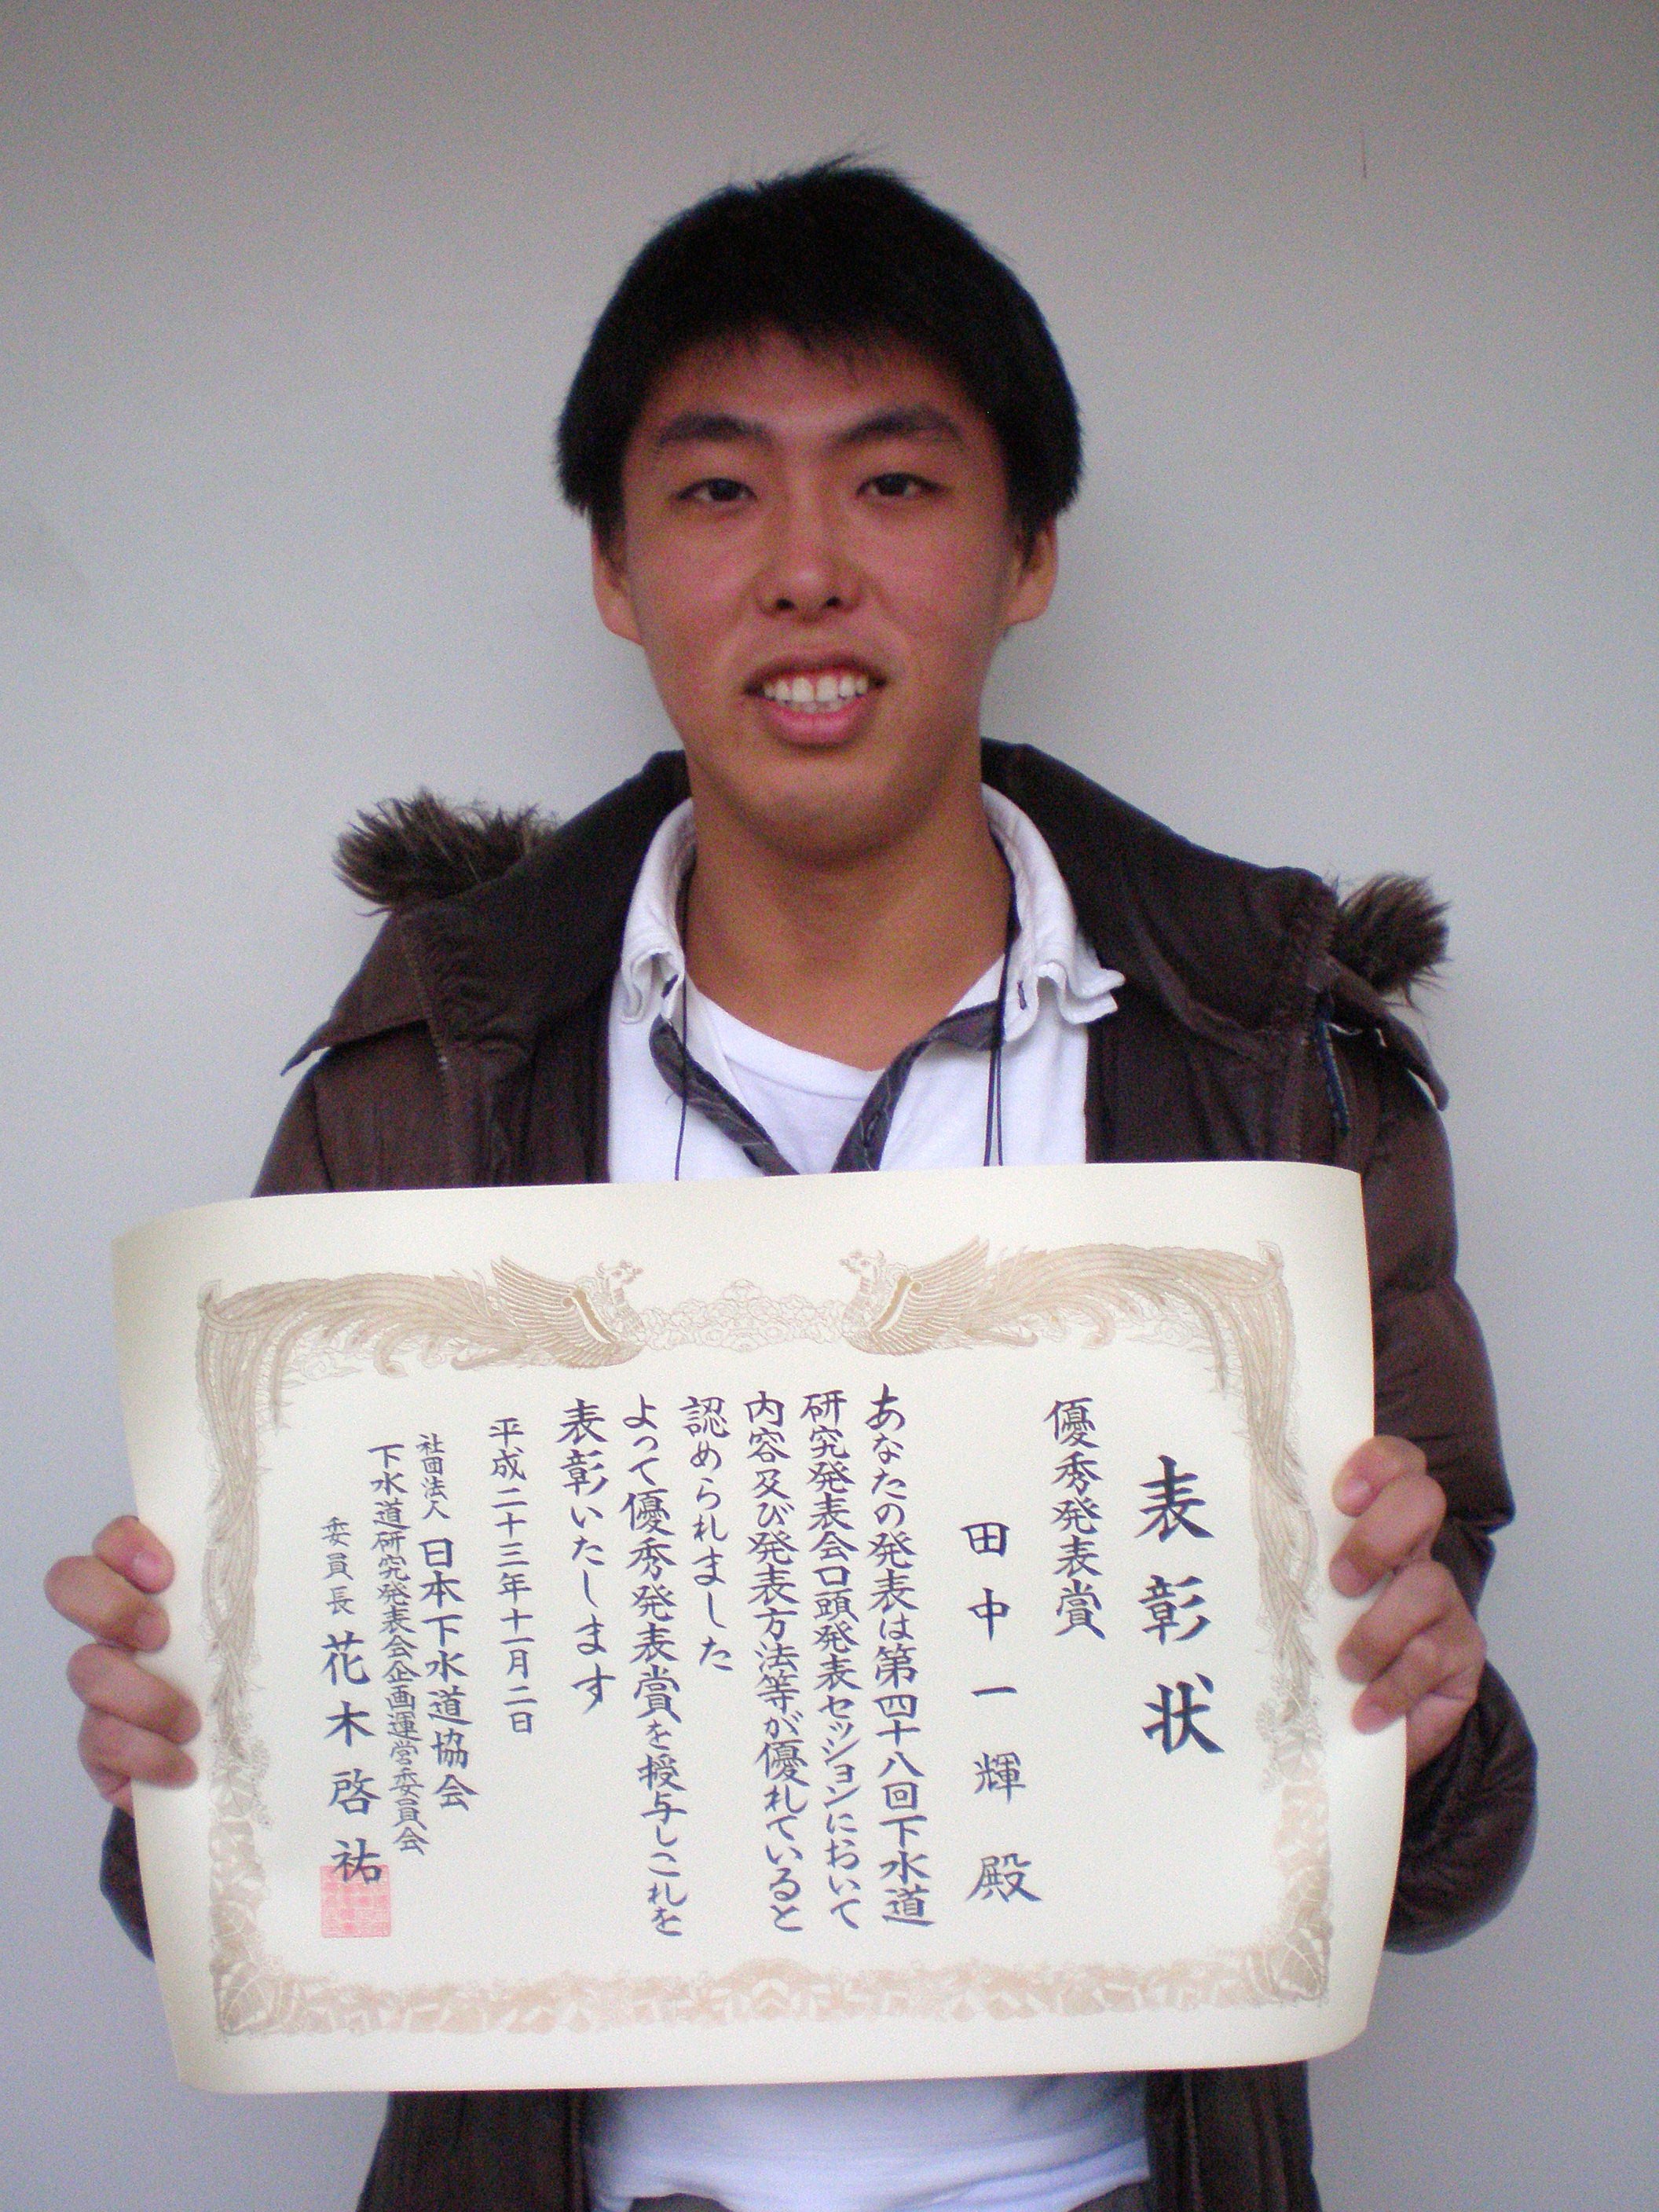 表彰状
優秀発表賞
田中一輝殿
あなたの発表は第四十八回下水道
研究発表会口頭発表セッションにおいて
内容及び発表方法等が優れていると
認められました
よって優秀発表賞を授与しこれを
表彰いたします
平成二十三年十一月二日
社団法人 日本下水道協会
下水道研究発表会企画運営委員会
委員長 花木啓祐